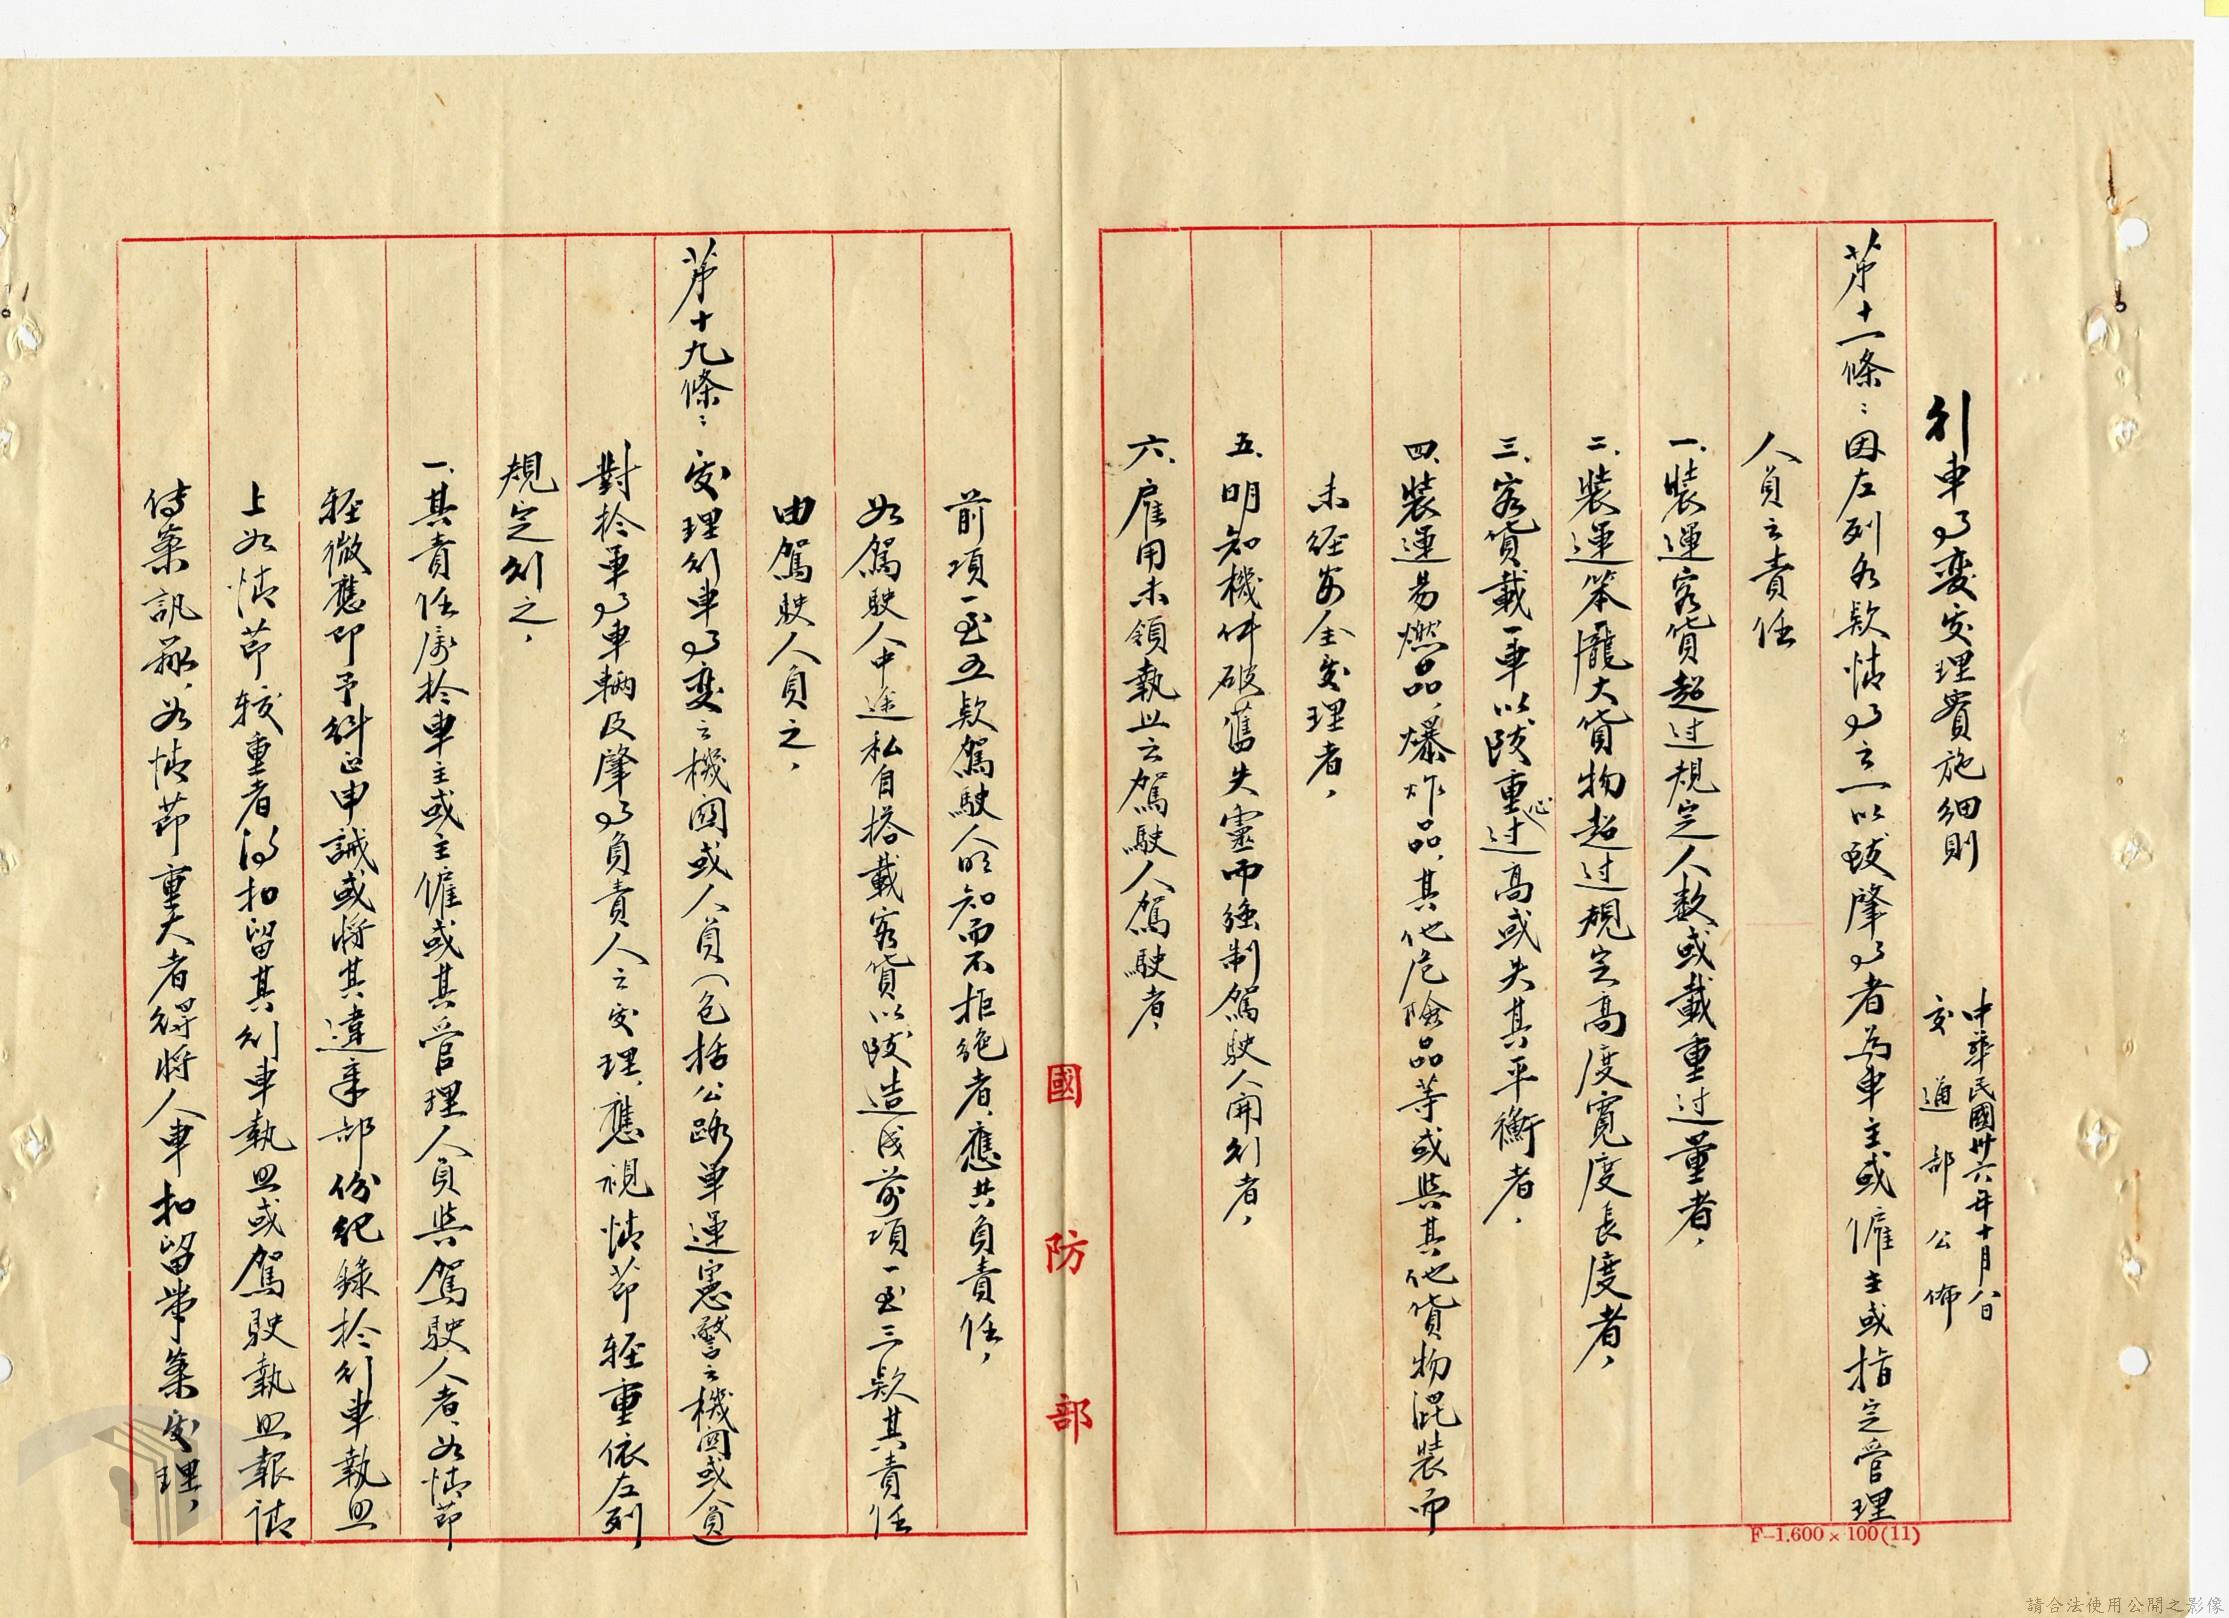 行車事變處理實施細則
中華民國卅六年十月八日
交通部公佈
第十一條：因左列各款情事之一以致肇事者為車主或僱主或指定管理
人員之責任
一、裝運客貨超过規定人数或載重过量者，
二、裝運笨龐大貨物超过規定高度寬度長度者，
三、客貨載一車以致重心过高或失其平衡者，
四、裝運易燃品，爆炸品，其他危險品等或與其他貨物混裝而
未經安全處理者，
五、明知機件破舊失靈而強制駕駛人開行者，
六、雇用未領執照之駕駛人駕駛者，
前項一至五款駕駛人明知而不拒絕者，應共負責任，
如駕駛人中途私自搭載客貨以致造成前項一至三款其責任
由駕駛人員之，
第十九條：處理行車事變之機関或人員（包括公路軍運憲警之機関或人員）
對於軍事車輛及肇事負責人之處理，應視情節輕重依左列
規定行之，
一、其責任屬於車主或主僱或其管理人員與駕駛人者，如情節
輕微應即予糾正申誡或將其違章部份紀錄於行車執照
上如情節較重者得扣留其行車執照或駕駛執照報請
傳案訊辦，如情節重大者得將人車扣留帶案處理，
國防部
F-1.600×100(11)
請合法使用公開之影像